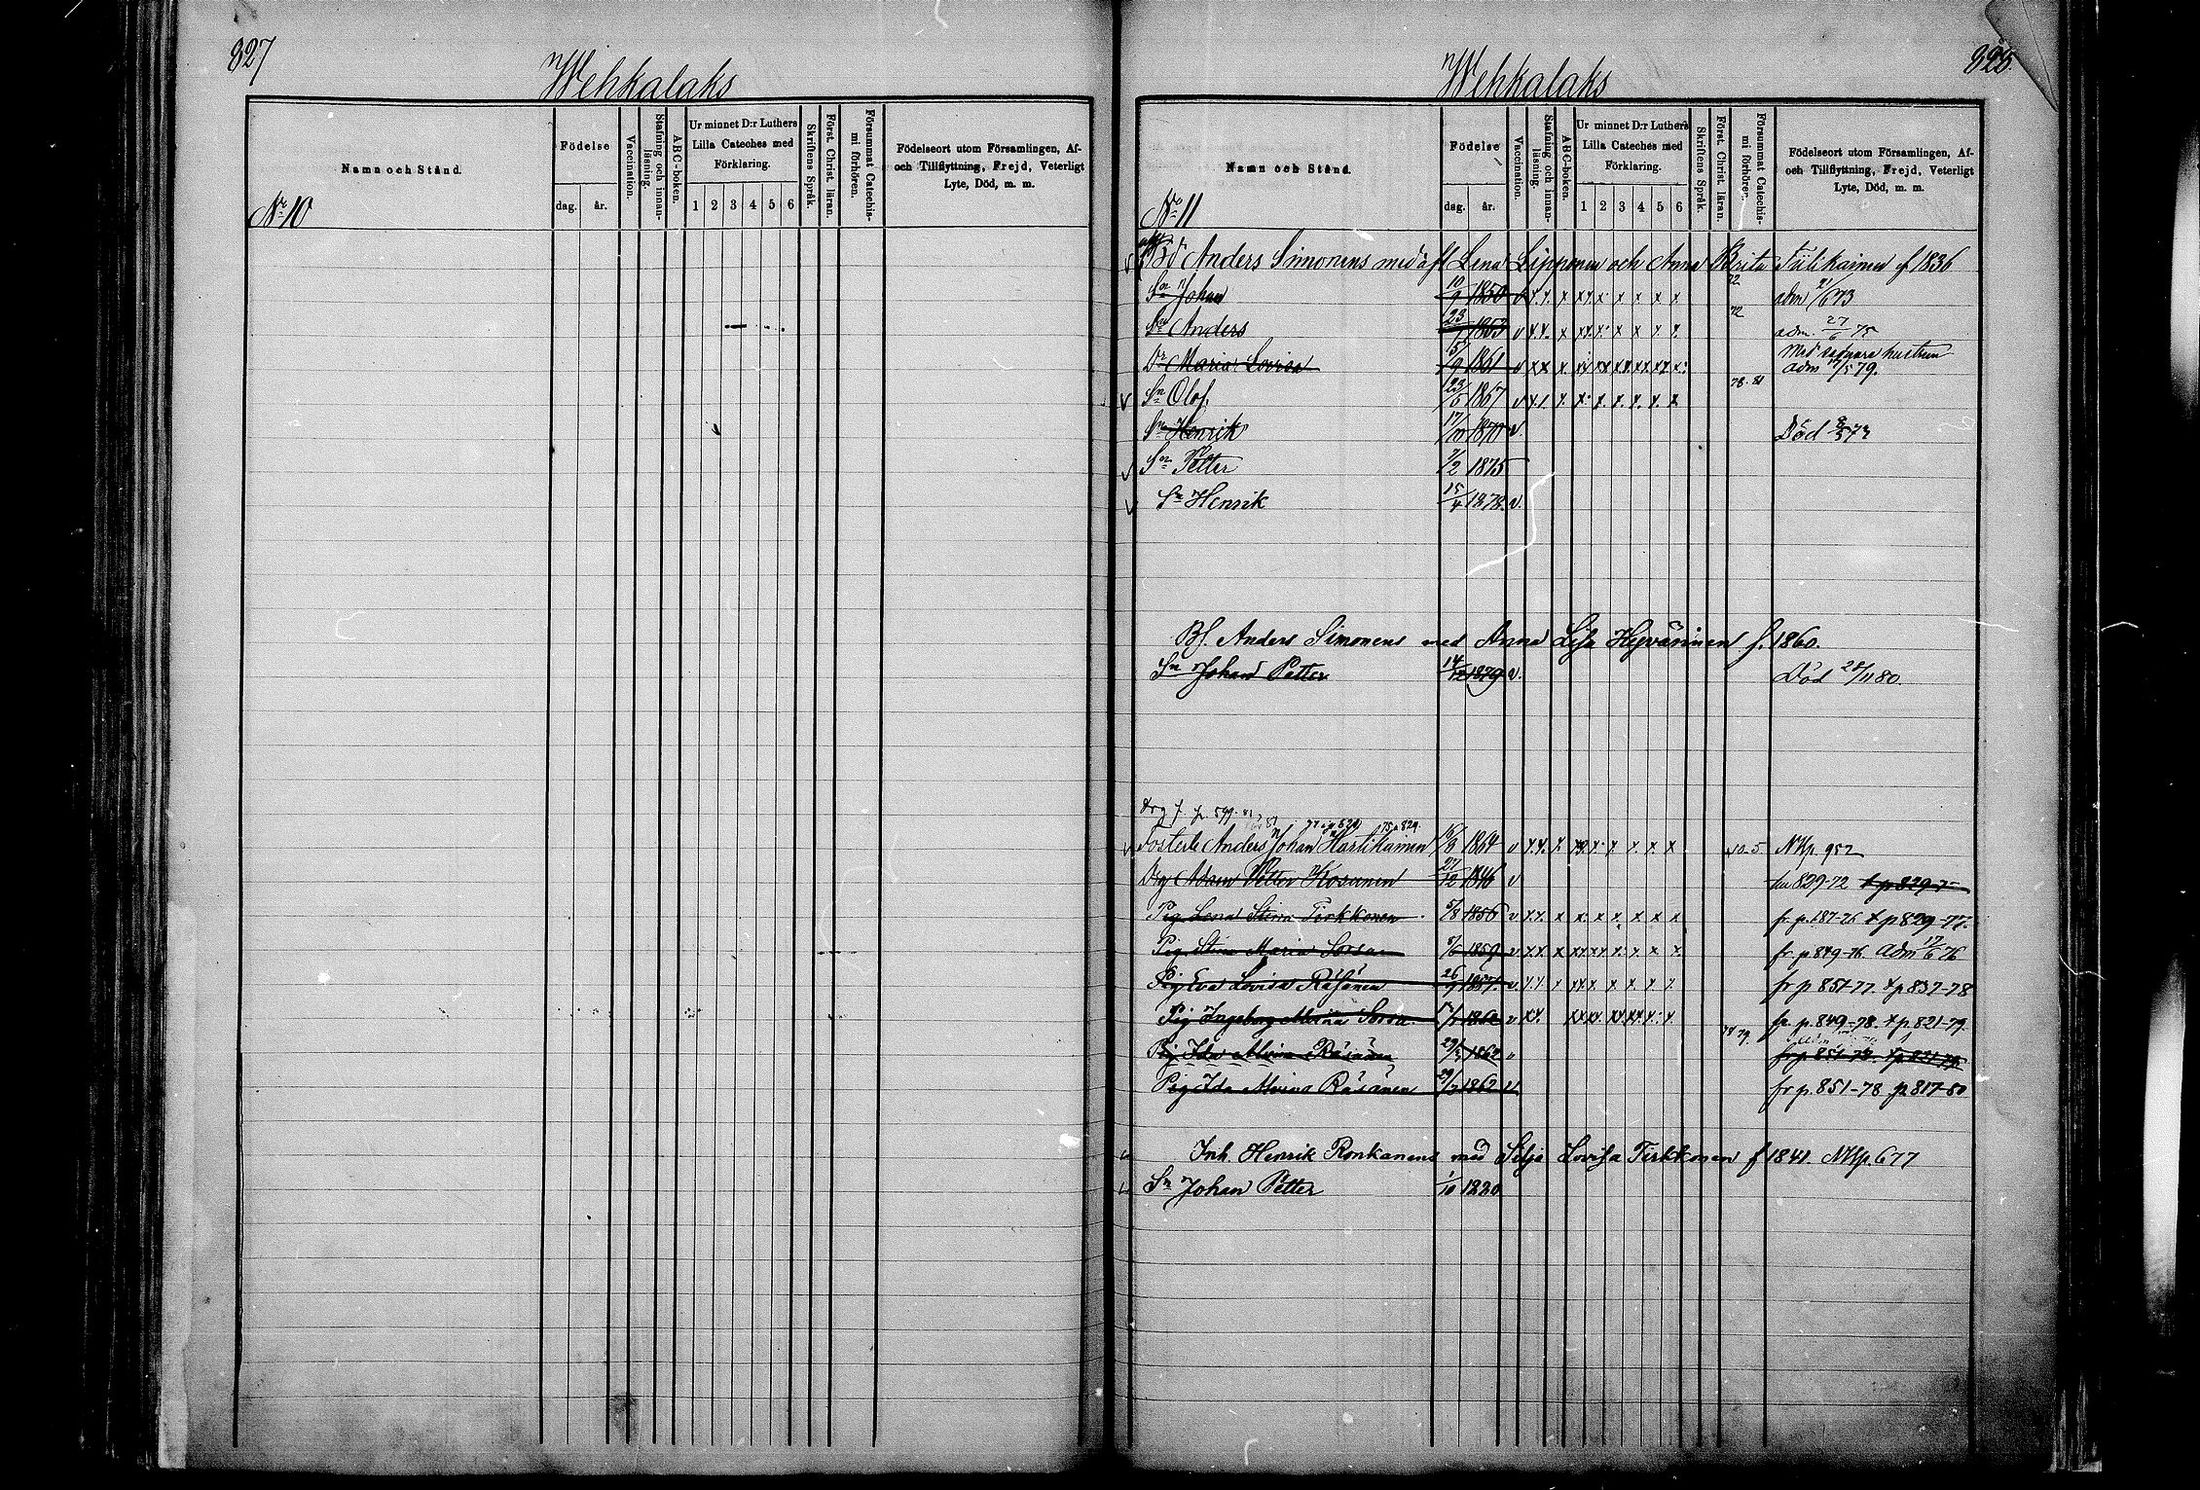 827
Wehkalaks
Namn och Stånd.
Födelse
dag. år.
Vaccination.
Stafning och innanläsning.
ABC-boken.
Ur minnet D:r Luthers
Lilla Cateches med
Förklaring.
1 2 3 4 5 6
Skriftens Språk.
Först. Christ. läran.
Försummat Catechismi förhören.
Födelseort utom Församlingen, Af-
och Tillflyttning, Frejd, Veterligt
Lyte, Död, m. m.
No 10
Wehkalaks
828
Namn och Stånd.
Födelse
dag. år.
Vaccination.
Stafning och innanläsning.
ABC-boken.
Ur minnet D:r Luthers
Lilla Cateches med
Förklaring.
1 2 3 4 5 6
Skriftens Språk.
Först. Christ. läran.
Försummat Catechismi förhören.
Födelseort utom Församlingen, Af-
och Tillflyttning, Frejd, Veterligt
Lyte, Död, m. m.
No 11
Anders Simonens med Lena Lipponen och Anna Brita Tiilikainen f 1836
Sn Johan 10/9 1850 v 72 adm 21/6 73
Sn Anders 23/1 1853 v 72 adm. 27/6 75
Dr Maria Lovisa 5/9 1861 v med hustrun adm 17/5 79.
Sn Olof 1867 v 78. 81
Sn Henrik 17/10 1870 v. Död 73
Sn Petter 7/2 1875
Sn Henrik 15/4 1878. v.
Bf. Anders Simonens med Anna Lisa Hyvärinen f. 1860.
Sn Johan Petter 14/12 1879 v. Död 28/11 80.
Fosterb Anders Johan Hartikainen 16/8 1864 v NKp. 952
Drg Adam Petter Kosunen 27/12 1846 v 829-72 t p 829-75
Pig Lena Stina Tirkkonen 5/8 1856 v fr. p. 187-76 t p 829-77.
Pig. Stina Maria Sorsa 8/6 1859 v fr. p 849-76. adm 17/6 76
Pig Eva Lovisa Räsänen 26/9 1857 v. fr p 851-77. t p 837-78
Pig Ingeborg Maria Sorsa v fr. p. 849-78. t p. 821-79.
Pig Ida Maria Räsänen 29/2 1862 78 79. fr p 851-78.
Pig Ida Maria Räsänen 29/2 1862 v fr p. 851-78 p 817-80
Inh. Henrik Ronkanens med Silja Lovisa Tirkkonen f 1841. NKp. 677
Sn Johan Petter 1/10 1880